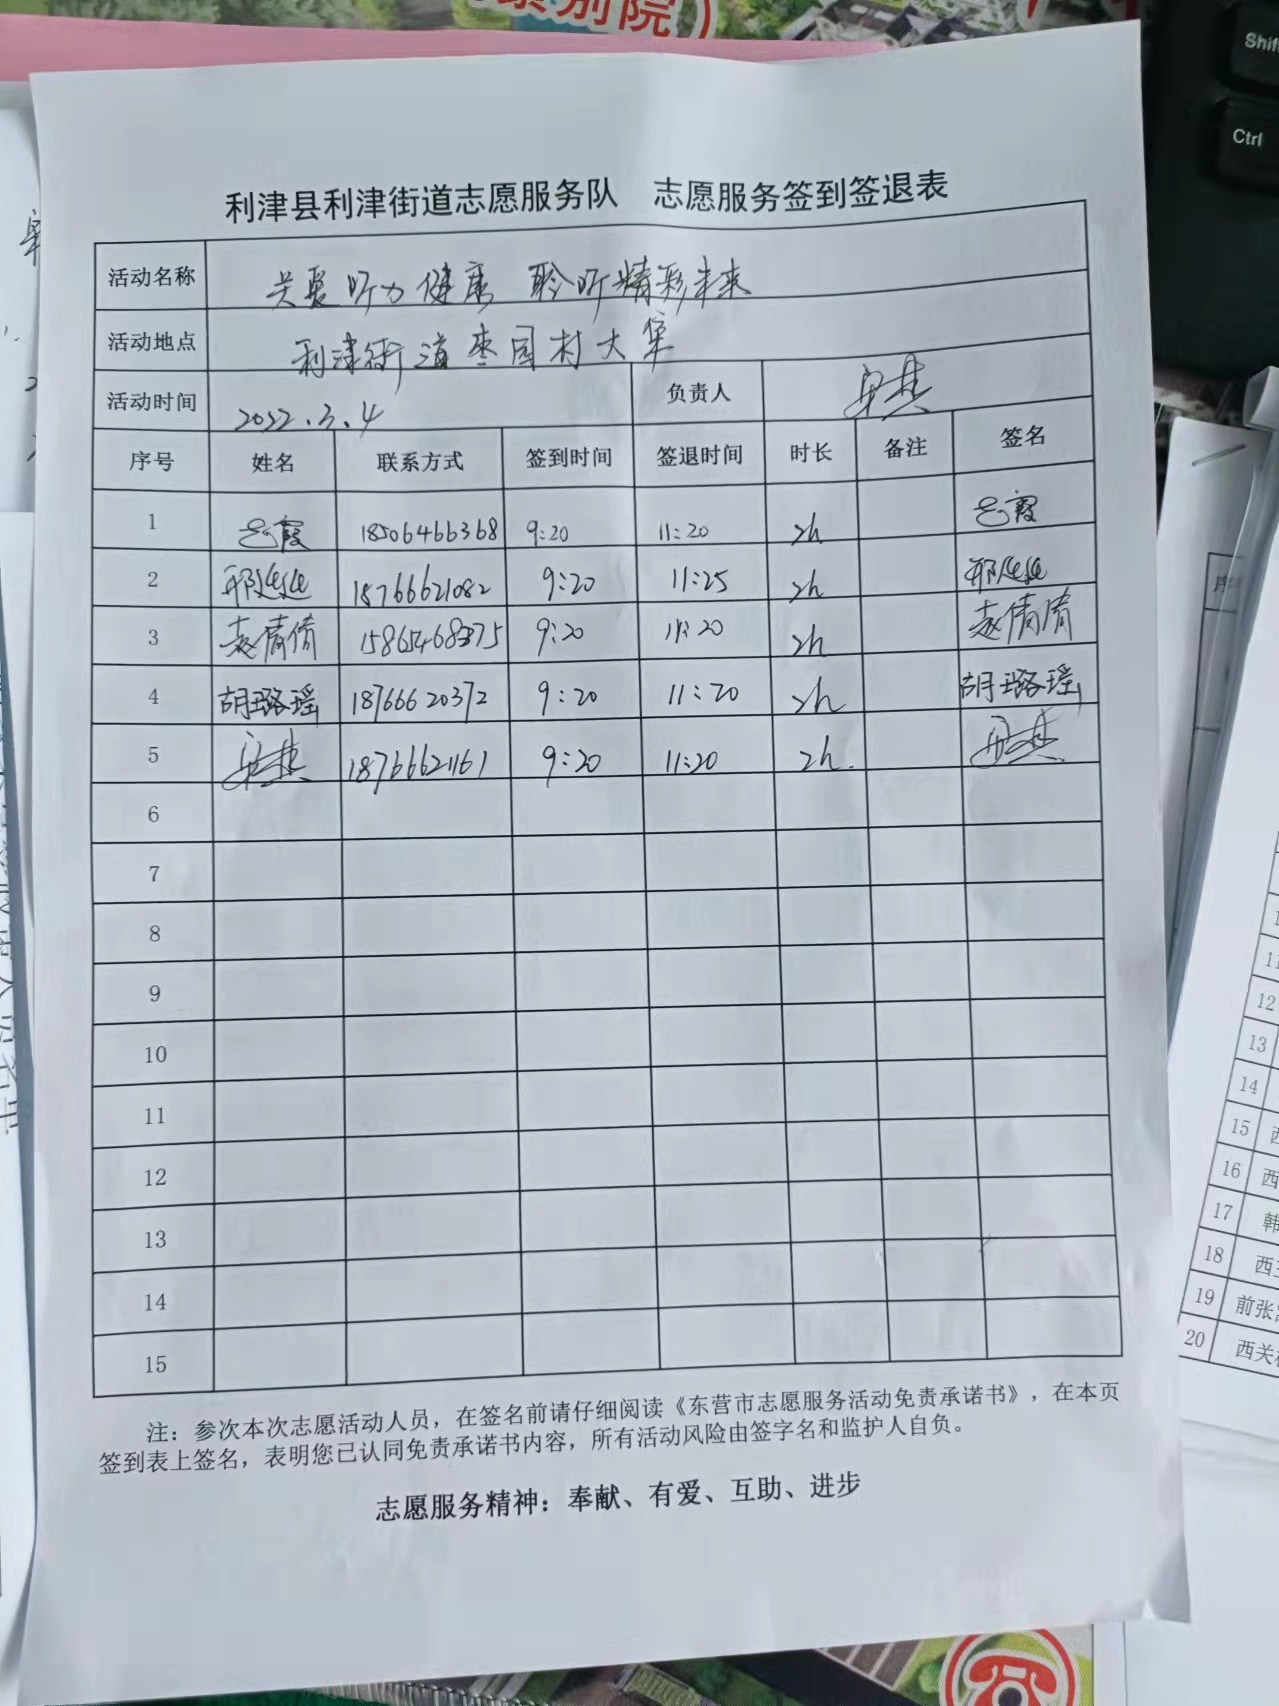 康别院）
Shift
Ctrl
利津县利津街道志愿服务队 志愿服务签到签退表
活动名称 关爱听力健康 聆听精彩未来
活动地点 利津街道枣园村大集
活动时间 2022.3.4 负责人
序号 姓名 联系方式 签到时间 签退时间 时长 备注 签名
1 吕霞 18506466368 9:20 11:20 2h 吕霞
2 邢延延 18766621082 9:20 11:25 2h 邢延延
3 袁倩倩 9:20 11:20 2h 袁倩倩
4 胡璐瑶 18766620372 9:20 11:20 2h 胡璐瑶
5 18766621161 9:20 11:20 2h.
6
7
8
9
10
11
12
13
14
15
注：参次本次志愿活动人员，在签名前请仔细阅读《东营市志愿服务活动免责承诺书》，在本页
签到表上签名，表明您已认同免责承诺书内容，所有活动风险由签字名和监护人自负。
志愿服务精神：奉献、有爱、互助、进步
12
13
14
15 西
16 西
17 韩
18 西
19 前张
20 西关